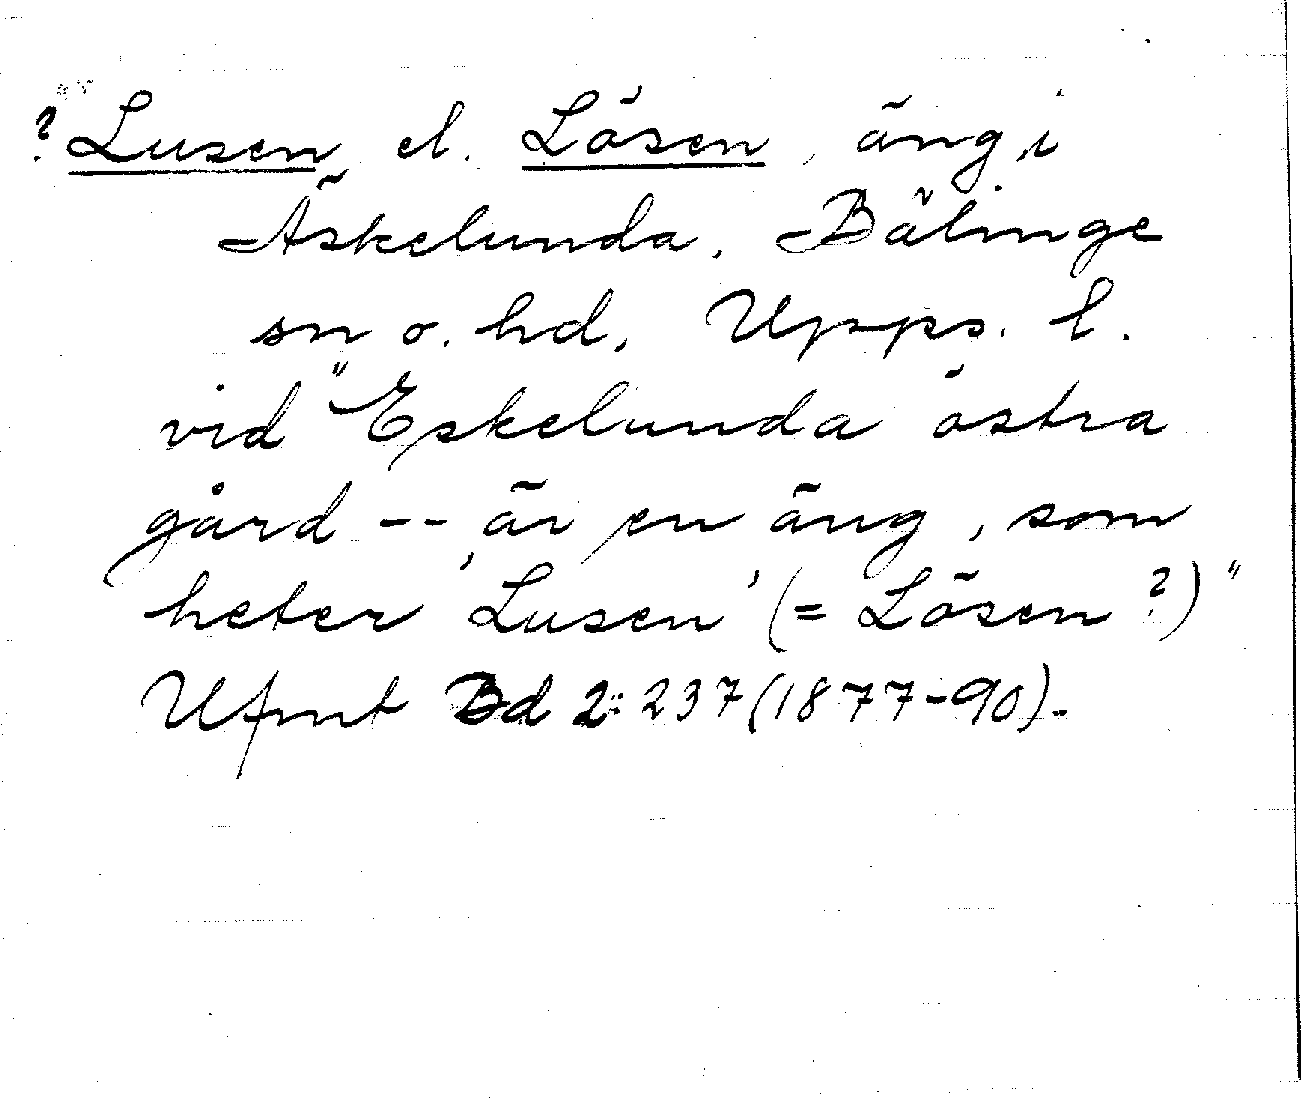 ? Lusen el. Lösen, äng i
Äskelunda, Bälinge
sn o. hd, Upps. l.
vid "Eskelunda östra
gård -- är en äng, som
heter 'Lusen' (= Lösen?)"
Ufmt Bd 2: 237 (1877-90).